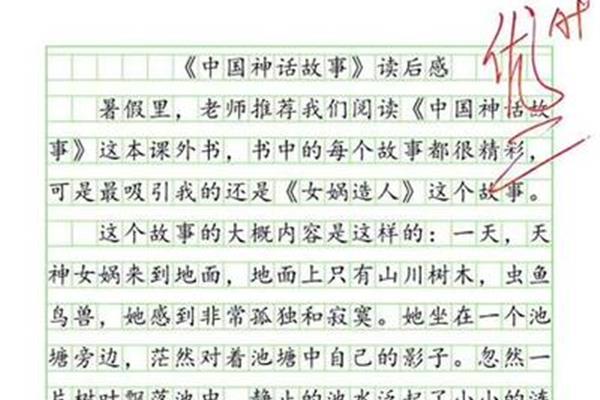 优 A+
《中国神话故事》读后感
暑假里，老师推荐我们阅读《中国神话故
事》这本课外书，书中的每个故事都很精彩，
可是最吸引我的还是《女娲造人》这个故事。
这个故事的大概内容是这样的：一天，天
神女娲来到地面，地面上只有山川树木，虫鱼
鸟兽，她感到非常孤独和寂寞。她坐在一个池
塘旁边，茫然对着池塘中自己的影子。忽然一
片树叶飘落池中，静止的池水泛起了小小的涟